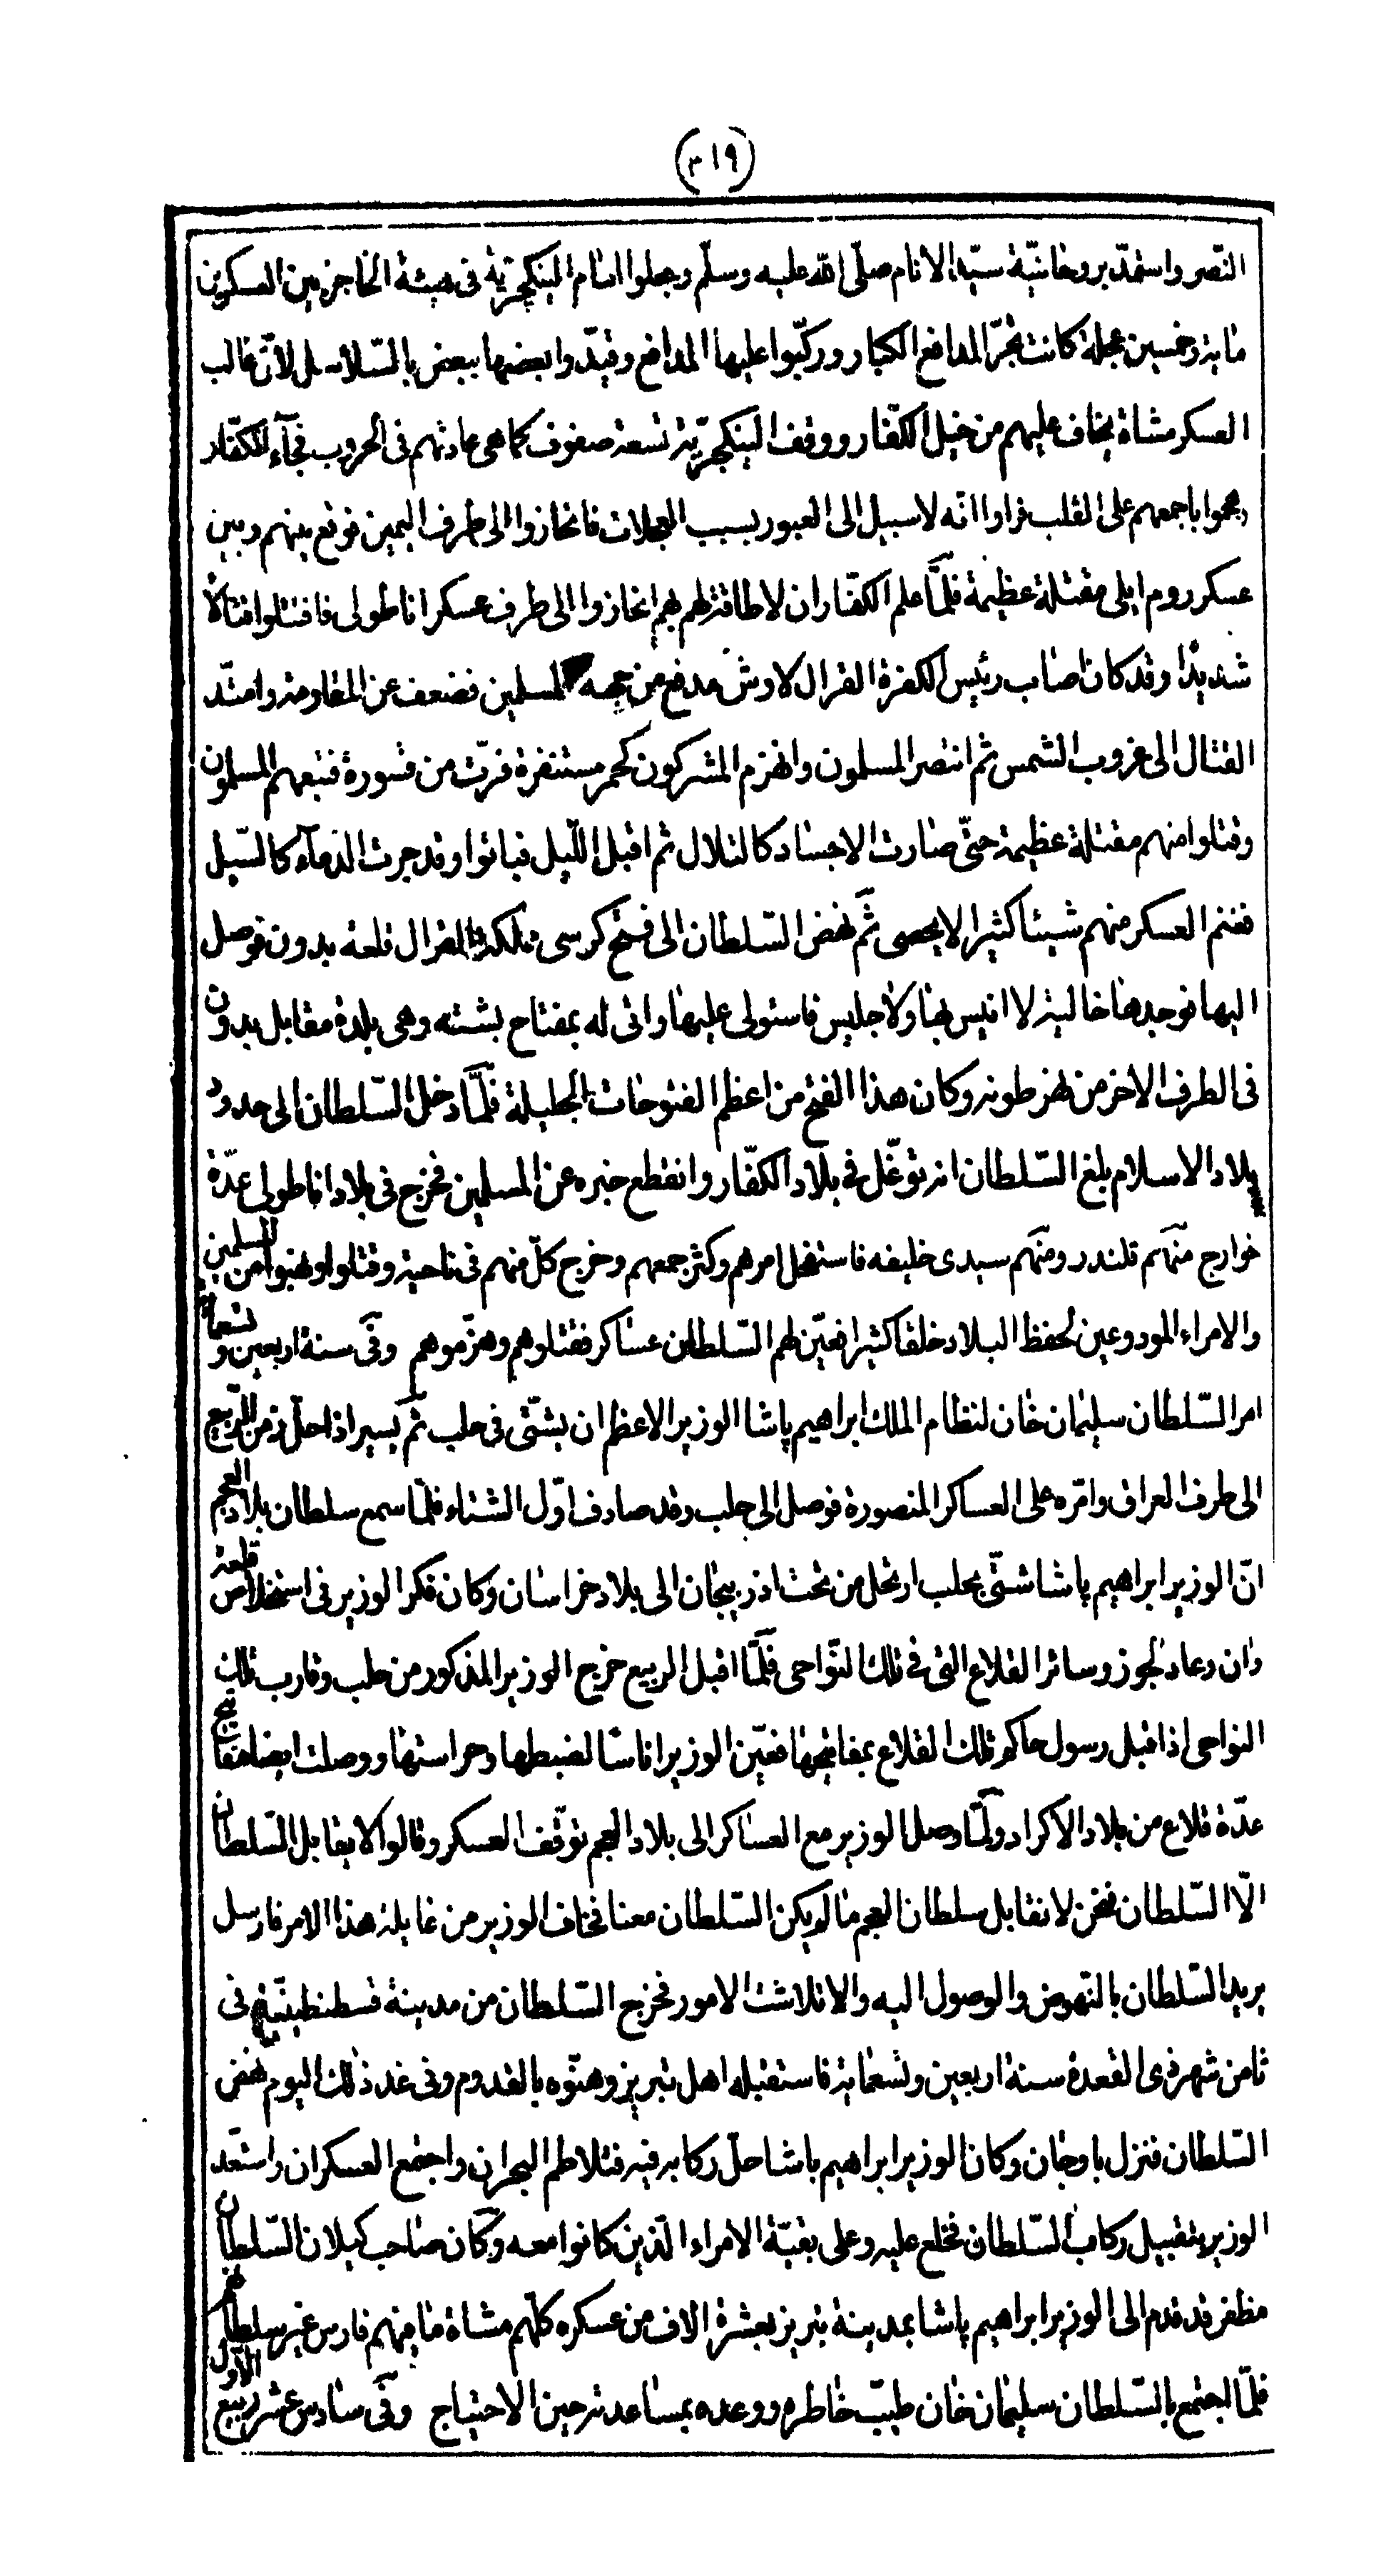 (٣١٩)
النّصر واستمدّ بروحانيّة سيّد الانام صلّى الله عليه وسلّم وجعلوا امام الينكچرية فى هيئة الحاجز بين العسكرين
مائة وخمسين عجلة كانت تجرّ المدافع الكبار وركّبوا عليها المدافع وقيّدوا بعضها ببعض بالسّلاسل لانّ غالب
العسكر مشاة يخاف عليهم من خيل الكفّار ووقف الينكچريّة تسعة صفوف كما هى عادتهم فى الحروب فجآء الكفّار
وهجموا باجمعهم على القلب فراوا انّه لا سبيل الى العبور بسبب العجلات فانحازوا الى طرف اليمين فوقع بينهم وبين
عسكر روم ايلى مقتلة عظيمة فلمّا علم الكفّار ان لا طاقة لهم بهم انحازوا الى طرف عسكر اناطولى فاقتتلوا قتالاً
شديدًا وقد كان اصاب رئيس الكفرة القرال لاوش مدفع من جهة المسلمين فضعف عن المقاومة وامتدّ
القتال الى غروب الشمس ثم انتصر المسلمون وانهزم المشركون كحمر مستنفرة فرّت من قسورة فتبعهم المسلمون
وقتلوا منهم مقتلة عظيمة حتّى صارت الاجساد كالتلال ثم اقبل اللّيل فباتوا وقد جرت الدمآء كالسّيل
فغنم العسكر منهم شيئا كثيرا لا يحصى ثم نهض السّلطان الى فتح كرسى مملكة القرال قلعة بدون فوصل
اليها فوجدها خالية لا انيس بها ولا جليس فاستولى عليها واتى له بمفتاح بشته وهى بلدة مقابل بدون
فى الطرف الاخر من نهر طونه وكان هذا الفتح من اعظم الفتوحات الجليلة فلمّا دخل السّلطان الى حدود
بلاد الاسلام بلغ السّلطان انه توغّل فى بلاد الكفّار وانقطع خبره عن المسلمين فخرج فى بلاد اناطولى عدّة
خوارج منهم قلندر ومنهم سيدى خليفه فاستفحل امرهم وكثر جمعهم وخرج كلّ منهم فى ناحية وقتلوا ونهبوا من المسلمين
والامراء المودوعين لحفظ البلاد خلقا كثيرا فعيّن لهم السّلطان عساكر فقتلوهم وهزموهم وفى سنة اربعين وتسعمائة
امر السّلطان سليمان خان لنظام الملك ابراهيم پاشا الوزير الاعظم ان يشتّى فى حلب ثم يسير اذا حلّ زمن الرّبيع
الى طرف العراق وامّره على العساكر المنصورة فوصل الى حلب وقد صادف اوّل الشتاء فلمّا سمع سلطان بلاد العجم
انّ الوزير ابراهيم پاشا شتّى بحلب ارتحل من تخت اذربيجان الى بلاد خراسان وكان فكر الوزير فى استخلاص قلعة
وان وعادلجوز وسائر القلاع التى فى تلك النّواحى فلمّا اقبل الربيع خرج الوزير المذكور من حلب وقارب تلك
النواحى اذ اقبل رسول حاكم تلك القلاع بمفاتيحها فعيّن الوزير اناسًا لضبطها وحراستها ووصلت ايضا مفاتيح
عدّة قلاع من بلاد الاكراد ولمّا وصل الوزير مع العساكر الى بلاد العجم توقّف العسكر وقالوا لا يقابل السّلطان
الّا السّلطان فنحن لا نقابل سلطان العجم ما لم يكن السّلطان معنا فخاف الوزير من غايلة هذا الامر فارسل
بريد السّلطان بالنّهوض والوصول اليه والا تلاشت الامور فخرج السّلطان من مدينة قسطنطينيّة فى
ثامن شهر ذى القعدة سنة اربعين وتسعمائة فاستقبله اهل تبريز وهنّوه بالقدوم وفى غد ذلك اليوم نهض
السّلطان فنزل باوجان وكان الوزير ابراهيم پاشا حلّ ركابه فيه فتلاطم البحران واجتمع العسكران واستعدّ
الوزير بتقبيل ركاب السّلطان فخلع عليه وعلى بقيّة الامراء الّذين كانوا معه وكان صاحب كيلان السّلطان
مظفر قد قدم الى الوزير ابراهيم پاشا بمدينة تبريز بعشرة الاف من عسكره كلّهم مشاة ما منهم فارس غير سلطانهم
فلمّا اجتمع بالسّلطان سليمان خان طيّب خاطره ووعده بمساعدته حين الاحتياج وفى سادس عشر ربيع الاول